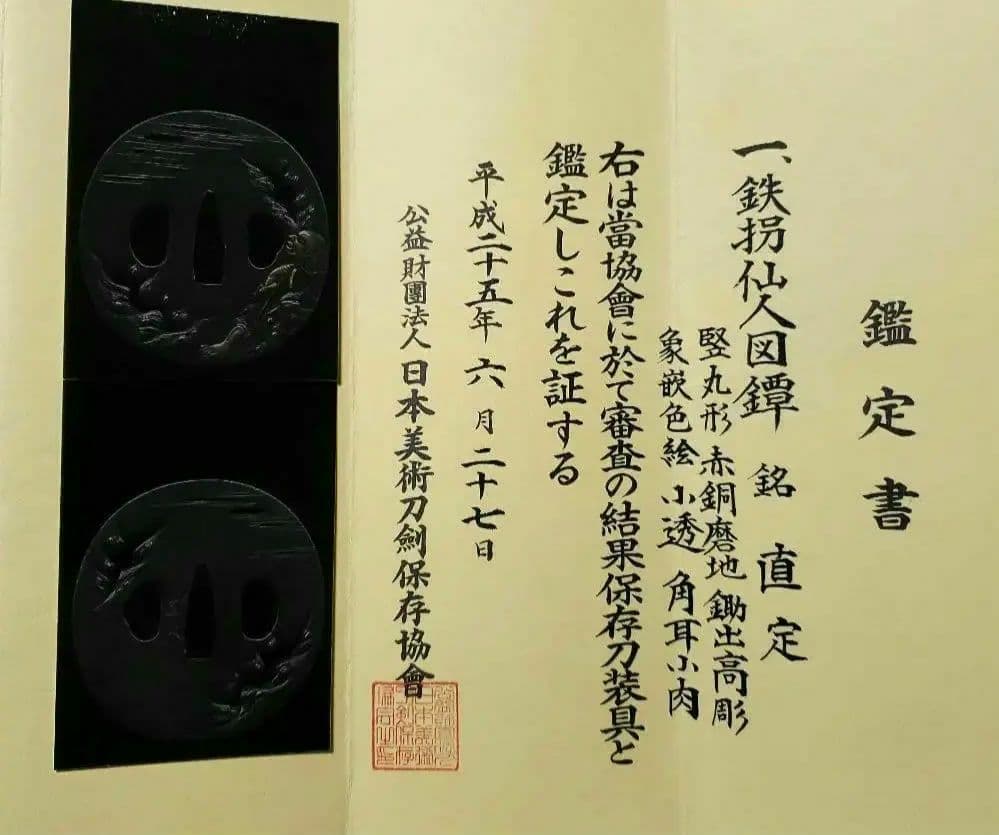 鑑定書
一、鉄拐仙人図鐔 銘 直定
竪丸形 赤銅磨地 鋤出高彫
象嵌色絵 小透 角耳小肉
右は當協會に於て審査の結果保存刀装具と
鑑定しこれを証する
平成二十五年六月二十七日
公益財團法人 日本美術刀劍保存協會